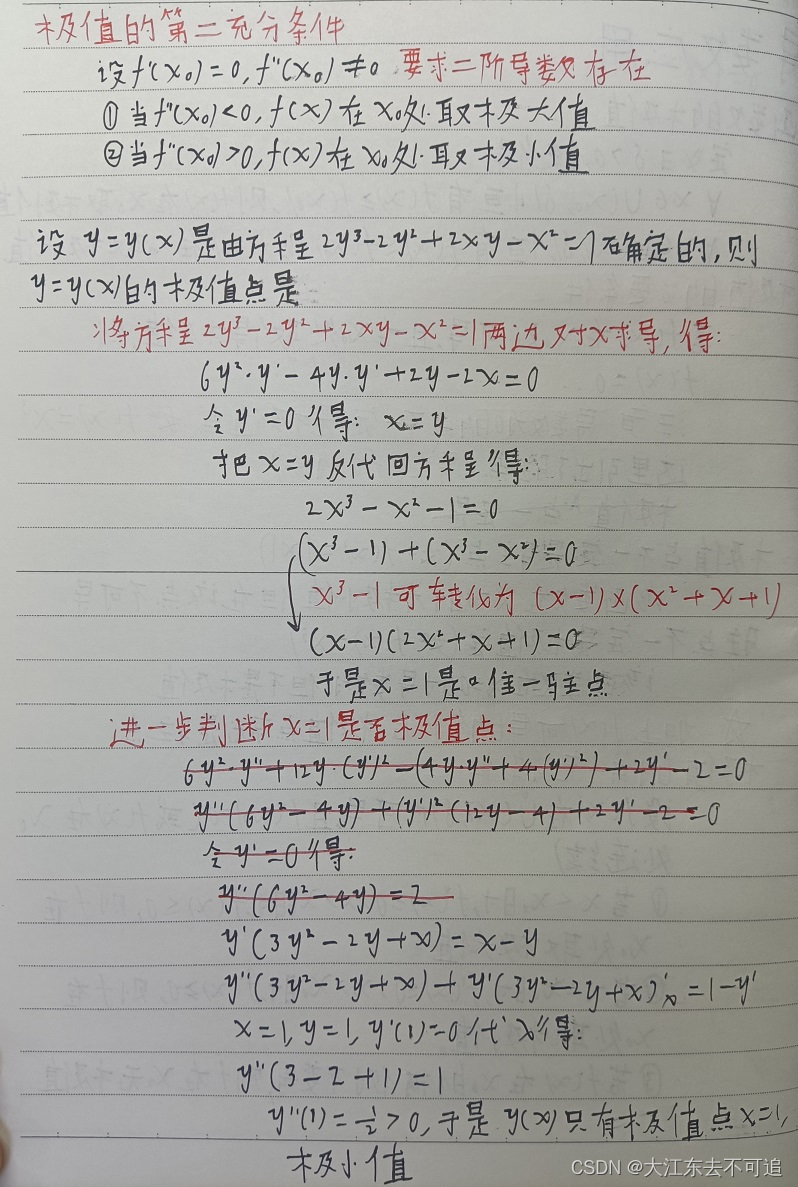 极值的第二充分条件
设f'(x₀)=0, f''(x₀)≠0 要求二阶导数存在
① 当f''(x₀)<0, f(x) 在 x₀处取极大值
② 当f''(x₀)>0, f(x) 在 x₀处取极小值
设 y=y(x) 是由方程 2y³-2y²+2xy-x²=1确定的, 则
y=y(x)的极值点是
将方程 2y³-2y²+2xy-x²=1两边对x求导, 得:
6y²·y'-4y·y'+2y-2x=0
令 y'=0 得: x=y
把 x=y 反代回方程得:
2x³-x²-1=0
(x³-1)+(x³-x²)=0
x³-1 可转化为 (x-1)×(x²+x+1)
(x-1)(2x²+x+1)=0
于是x=1是唯一驻点
进一步判断x=1是否极值点:
6y²·y''+12y·(y')²-(4y·y''+4(y')²)+2y'-2=0
y''(6y²-4y)+(y')²(12y-4)+2y'-2=0
令 y'=0得:
y''(6y²-4y)=2
y'(3y²-2y+x)=x-y
y''(3y²-2y+x)+y'(3y²-2y+x)'ₓ=1-y'
x=1, y=1, y'(1)=0 代入得:
y''(3-2+1)=1
y''(1)=½>0, 于是 y(x)只有极值点x=1,
极小值
CSDN @大江东去不可追